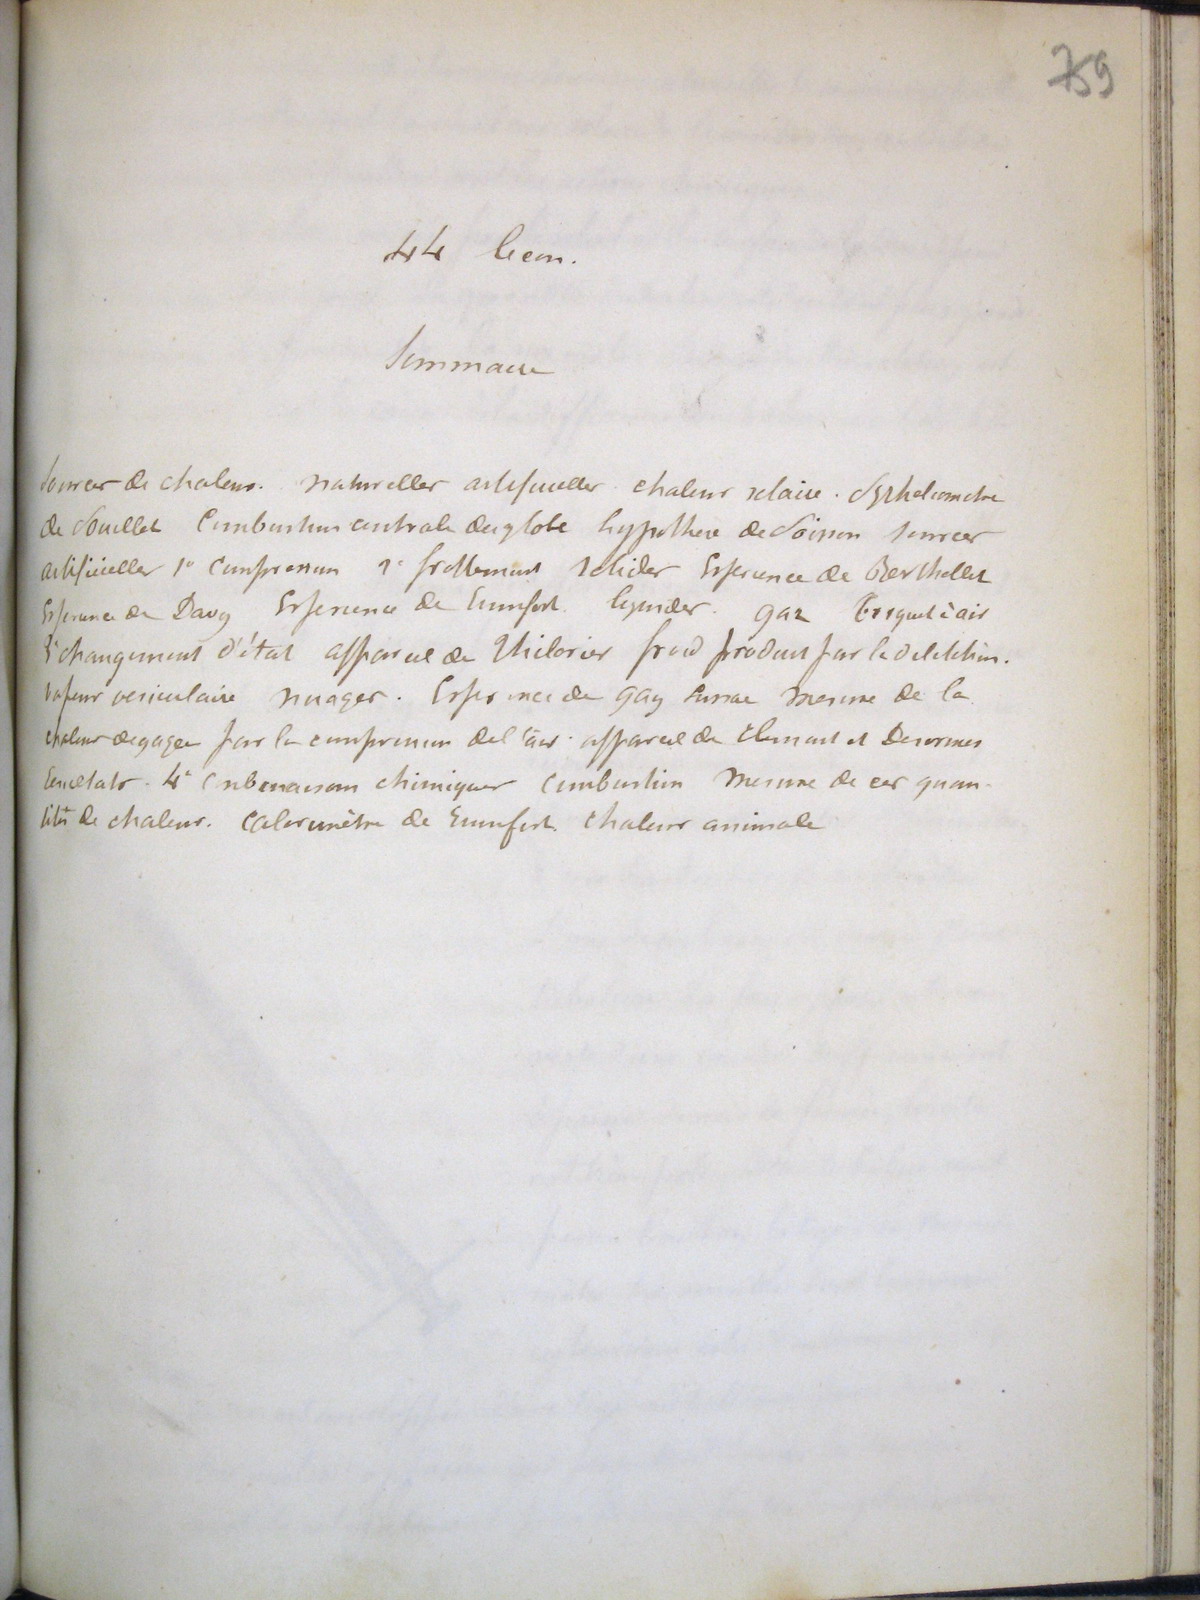 759
44 lecon.
Sommaire
Sources de chaleur. naturelles artificielles chaleur solaire. Pyrheliometre
de Pouillet Combustion centrale du globe hypothese de Poisson sources
artificielles 1° compression 2° frottement solides Experience de Berthollet
Experience de Davy Experience de Rumfort. liquides. gaz Briquet à air
3° changement d'état appareil de Thilorier froid produit par la dilatation.
vapeur vesiculaire nuages. Experience de gay Lussac mesure de la
chaleur degagee par la compression de l'air. appareil de Clement et Desormes
resultats. 4° combinaisons chimiques combustion mesure de ces quan-
tités de chaleur. Calorimètre de Rumfort. chaleur animale